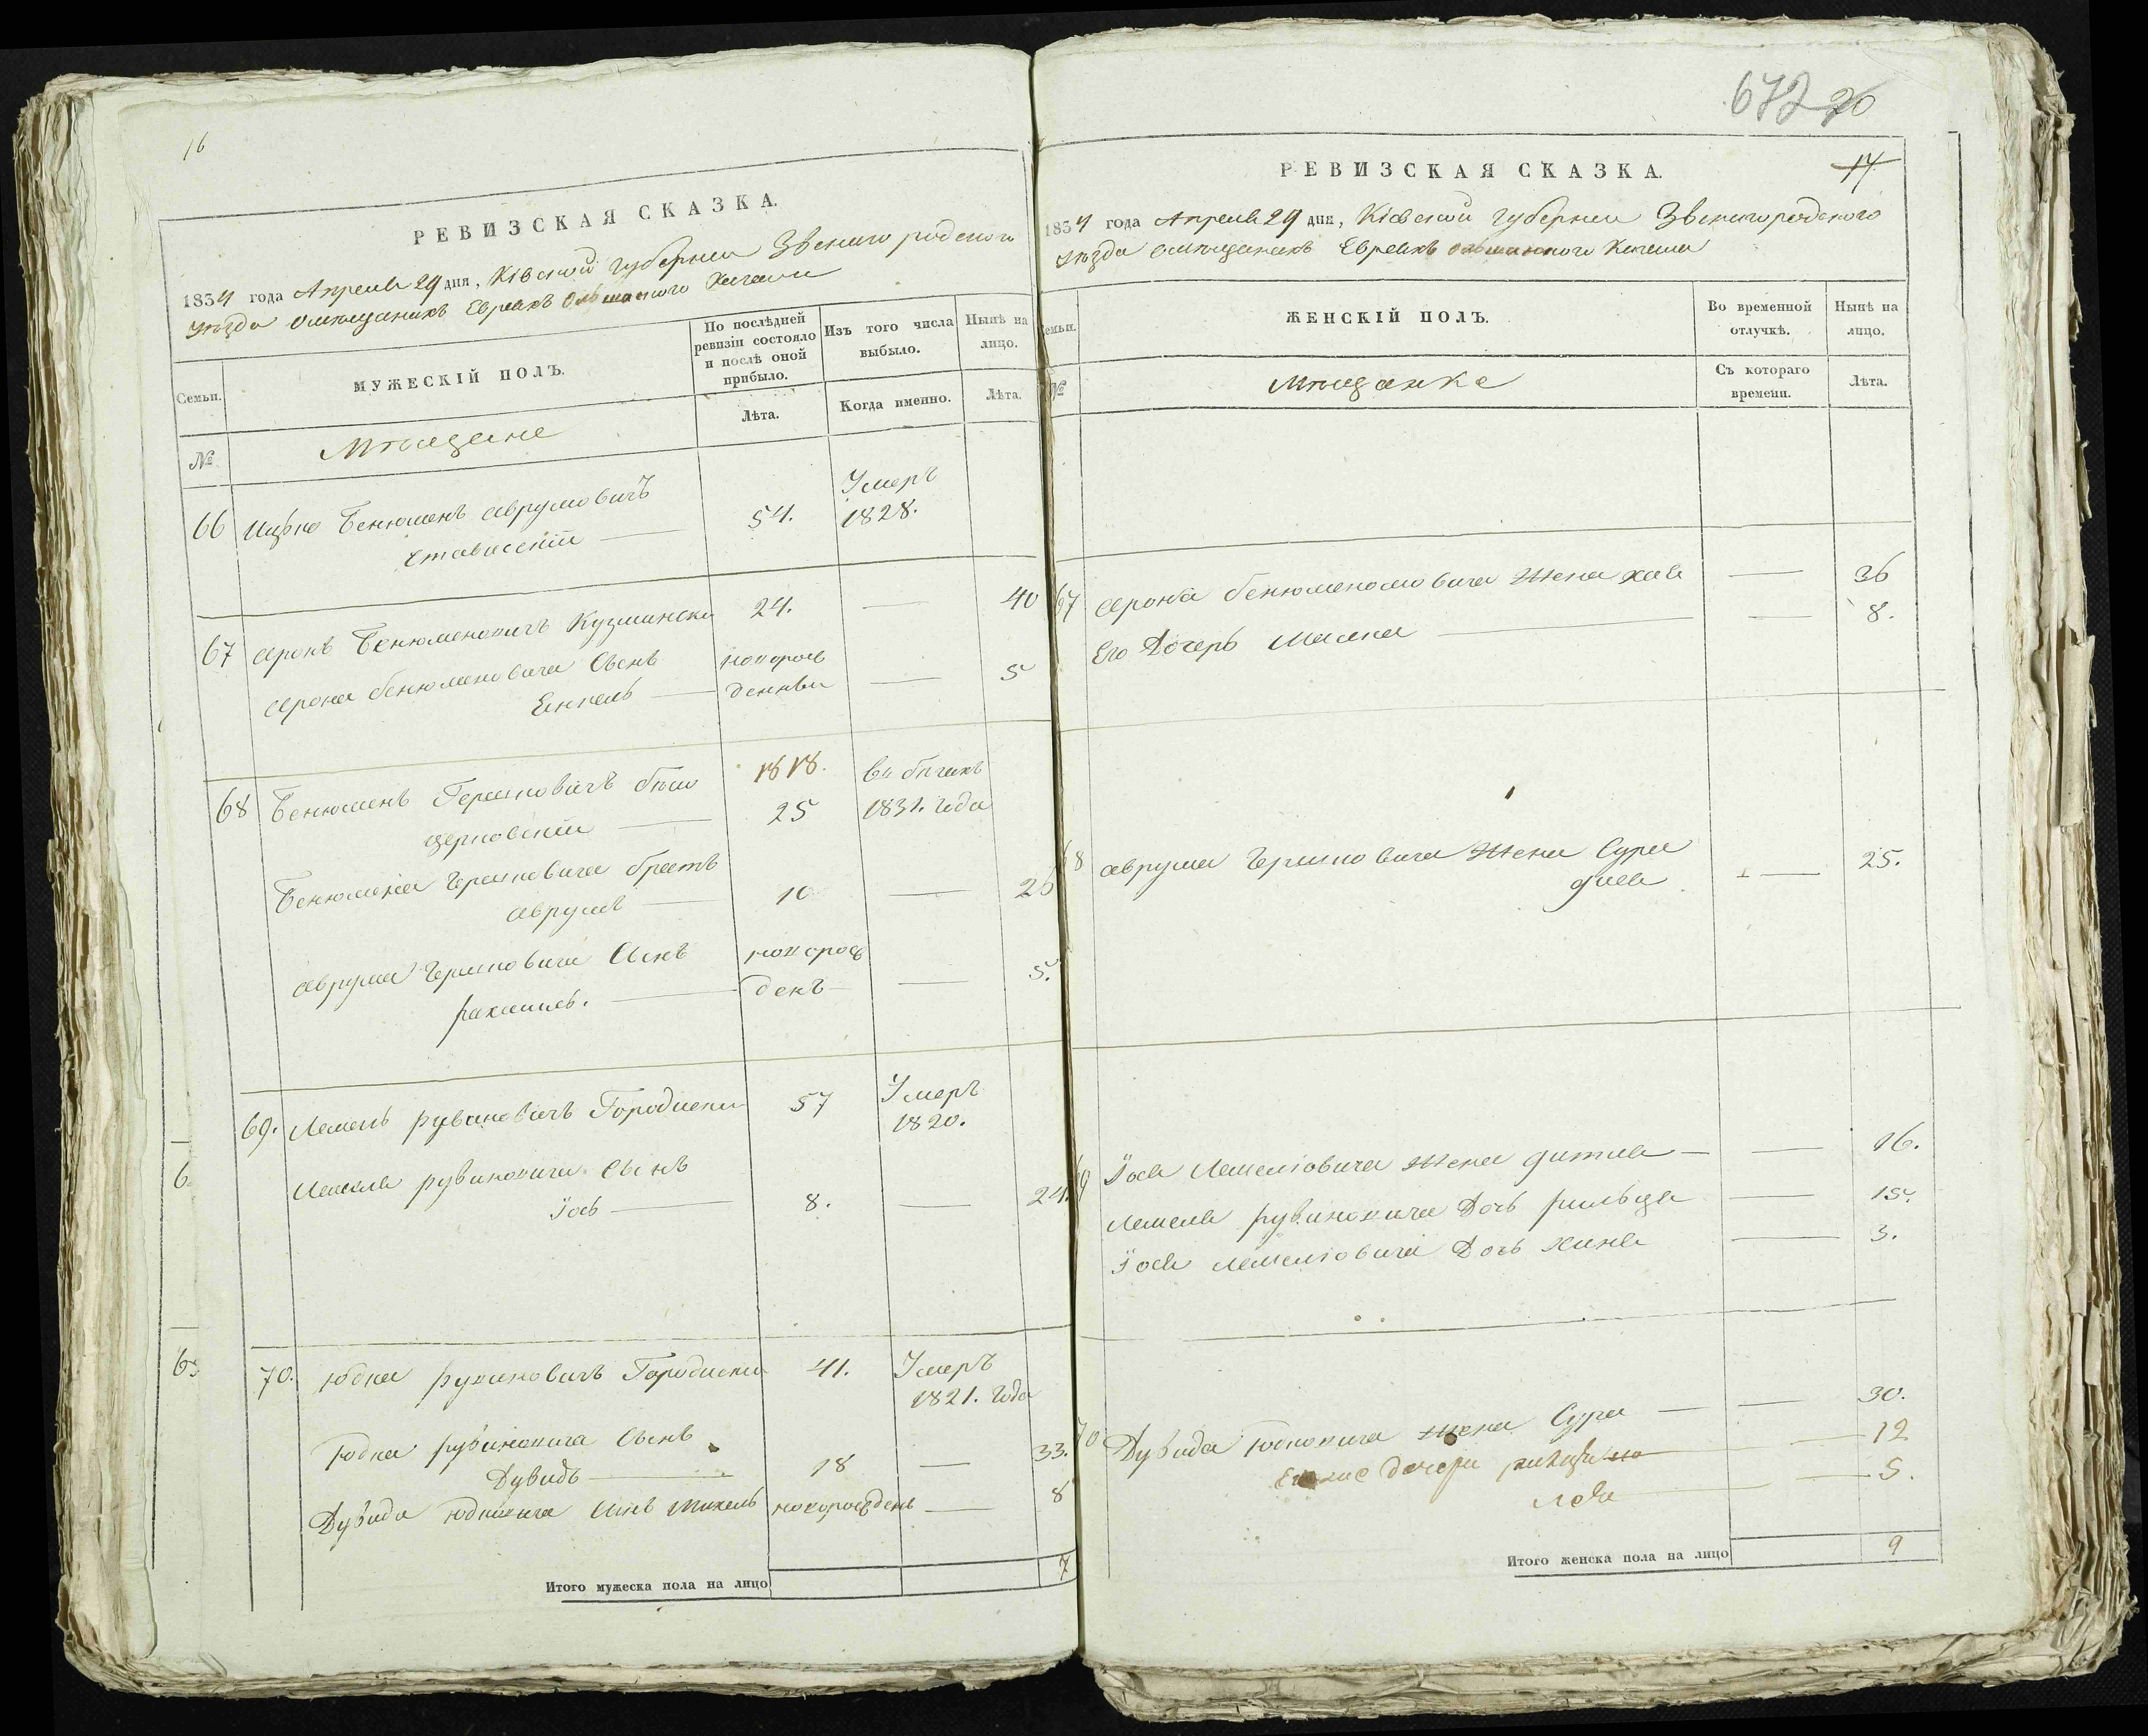 16
РЕВИЗСКАЯ СКАЗКА.
1834 года Апреля 29 дня, Кіевской губерніи Звенигородского
уезда о мещанахъ Евреяхъ Ольшанского Кагала
Семьи.
МУЖЕСКІЙ ПОЛЪ.
По послѣдней ревизіи состояло и послѣ оной прибыло.
Изъ того числа выбыло.
Нынѣ на лицо.
№
Мѣщане
Лѣта.
Когда именно.
Лѣта.
66 Ицько Бенюменъ Аврумовичъ
Ставиский 54. Умеръ 1828.
67 Аронъ Бенюменовичъ Кузмински 24. — 40
Арона Бенюменовича Сынъ
Енкель — новорож денны — 5
68 Бенюменъ Гершковичъ бѣло
церковский — 1818. 25 въ бѣгахъ 1831. года
Бенюмена Гершковича братъ
Аврумъ — 10 — 26
Аврума Гершковича Сынъ
рахмиль. — новорож денъ — 5.
69. Лемель рувиновичъ Городиски 57 Умеръ 1820.
Лемеля рувиновича Сынъ
Іось — 8. — 24.
70. Юдка рувиновичъ Городиски 41. Умеръ 1821. года
Юдка рувиновича Сынъ
Дувидъ — 18 — 33.
Дувида Юдковича Сынъ Михель новорожденъ — 8
Итого мужеска пола на лицо 7
672 20
14
РЕВИЗСКАЯ СКАЗКА.
1834 года Апреля 29 дня, Кіевской губерніи Звенигородского
уезда о мещанахъ Евреяхъ Ольшанского Кагала
Семьи.
ЖЕНСКІЙ ПОЛЪ.
Во временной отлучкѣ.
Нынѣ на лицо.
№
Мѣщанке
Съ котораго времени.
Лѣта.
67 Арона Бенюменовича Жена хая — 36
Его Дочерь — 8.
68 Аврума Гершковича Жена Сура — 25.
69 Іося Лемелiовича Жена — 16.
Лемеля рувиновича Дочь — 15.
Іося Лемелiовича Дочь хиня — 3.
70 Дувида Юдковича жена Сура — 30.
дочери — 12
лея — 5.
Итого женска пола на лицо 9